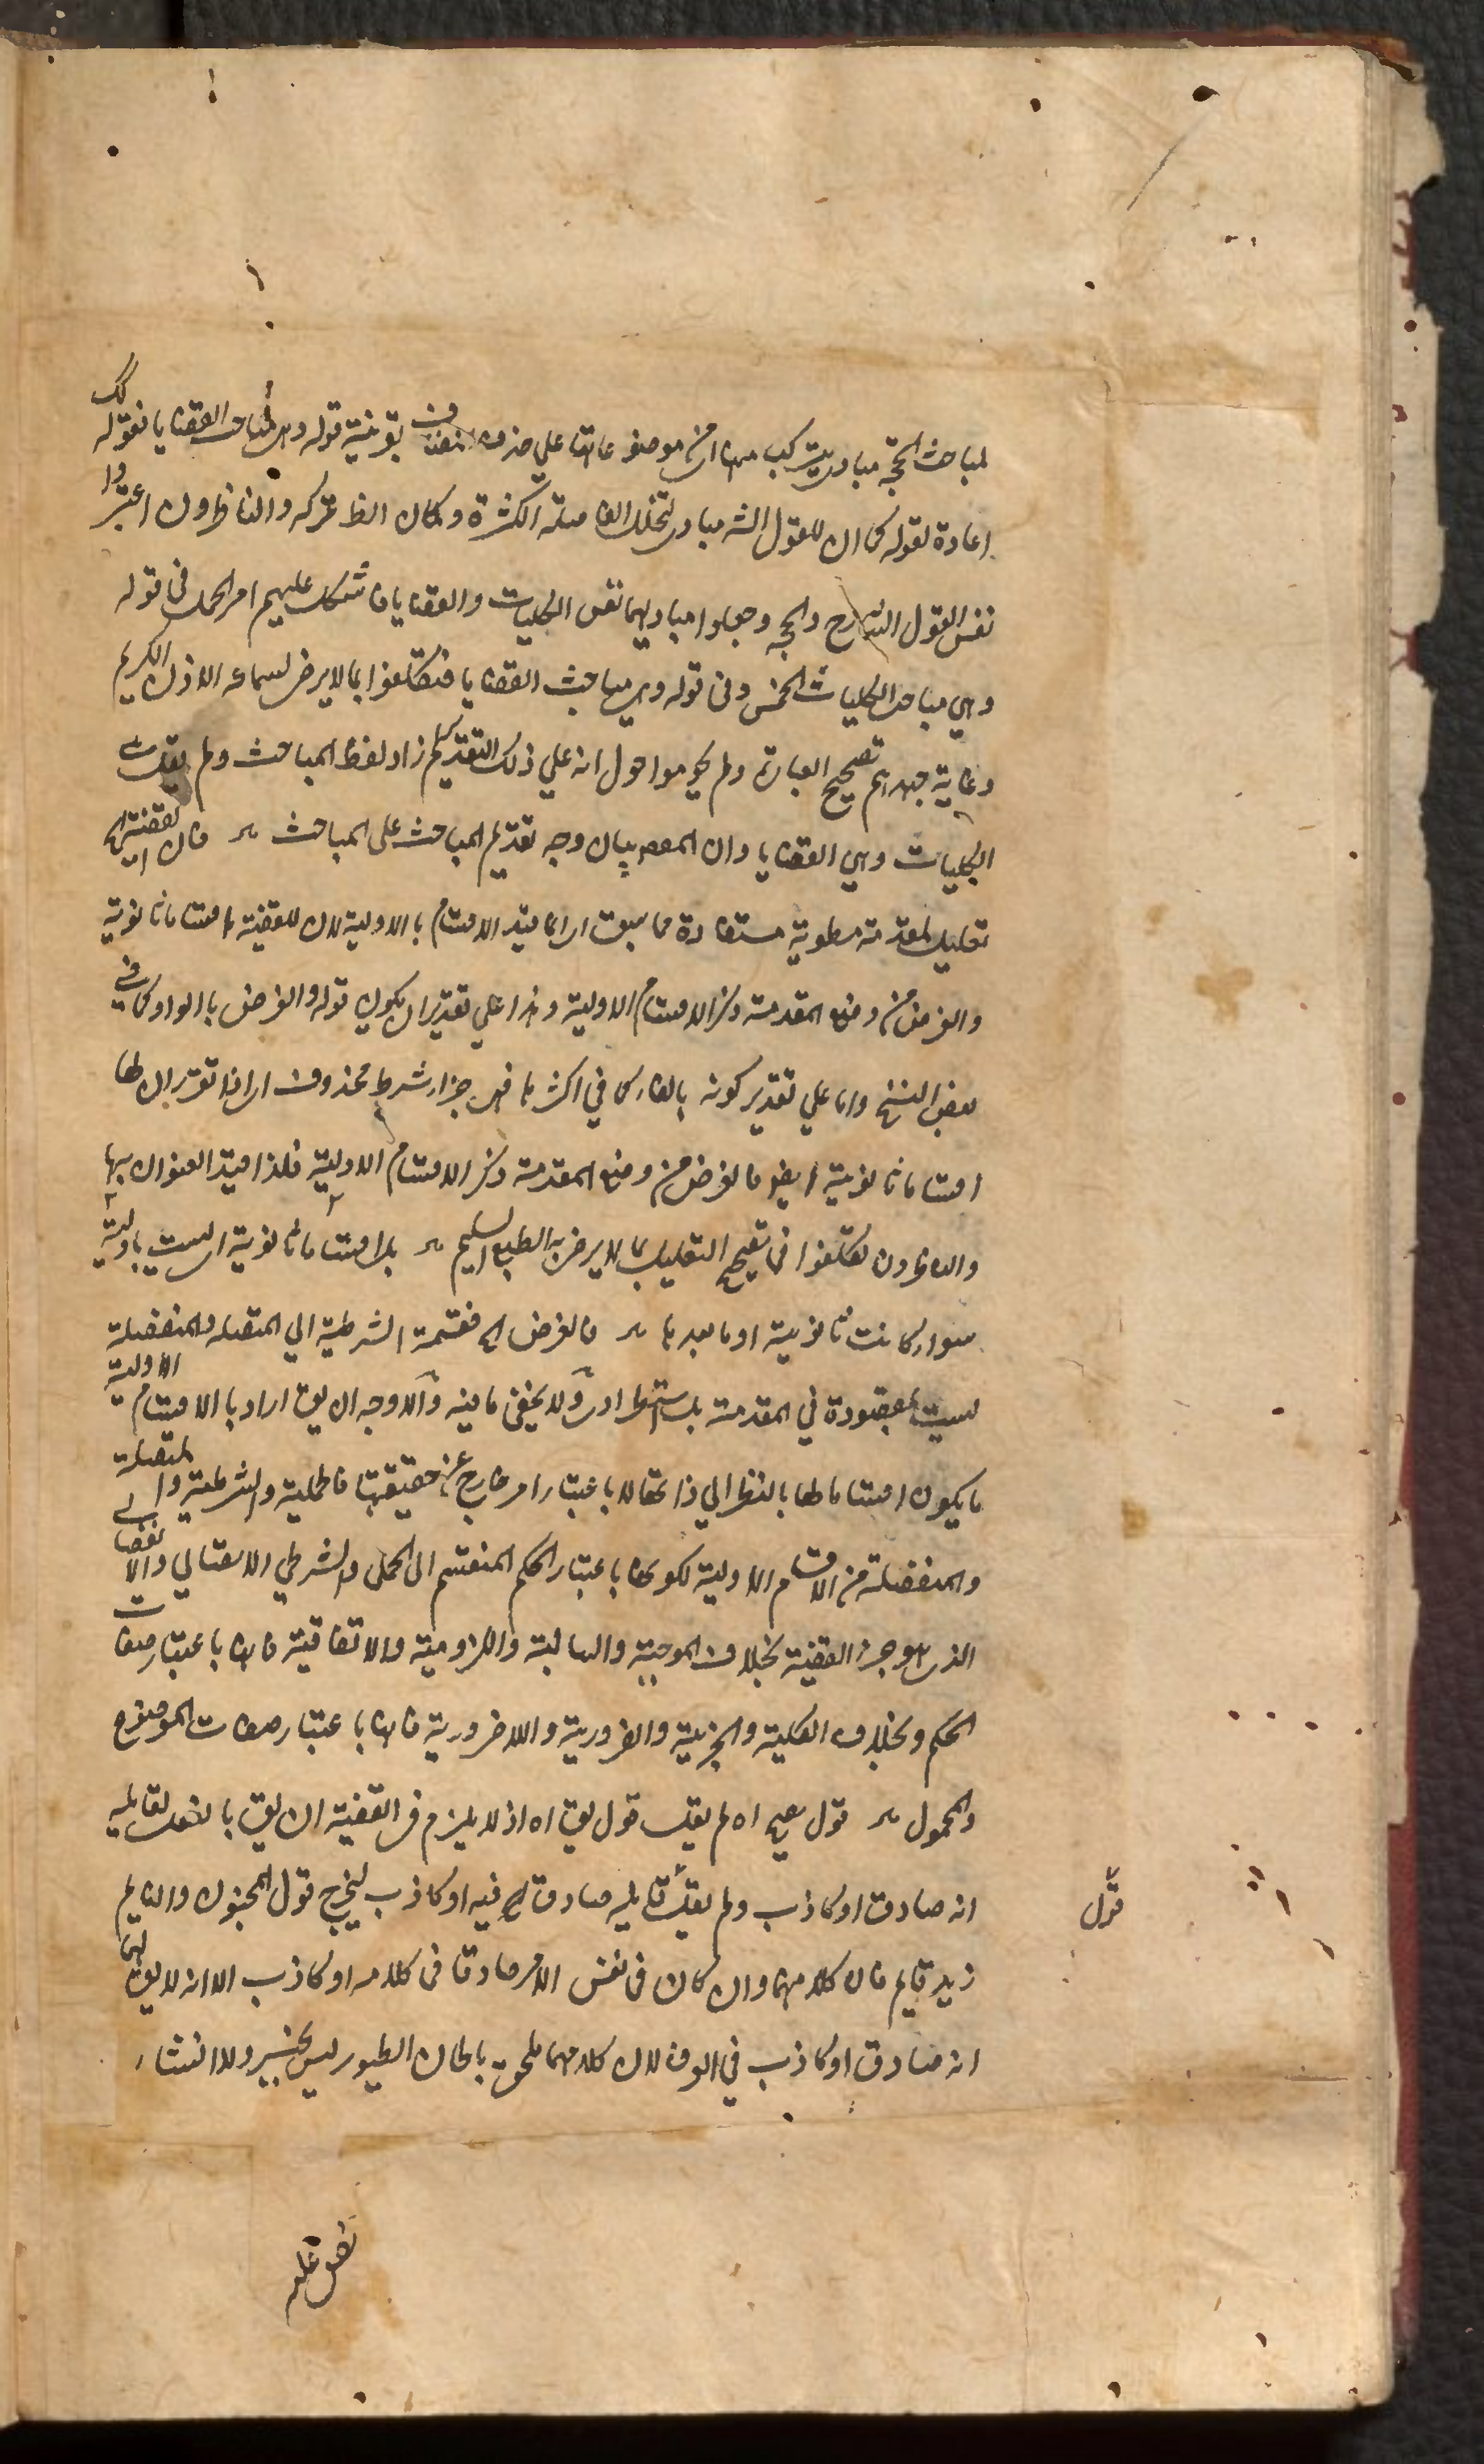 لمباحث الحجة مبادى يتركب منها اى من موضوعاتها على حذف مضاف بقرينة قوله وهى مباحث القضايا فقوله لك
اعادة لقوله كما ان للقول الشه مبادى لتخلل الفاصلة الكثيرة وكان الظ تركه والناظرون اعتبروا
نفس القول الشارح والحجة وجعلوا مباديهما نفس الكليات والقضايا فاشكل عليهم امر الحمل فى قوله
وهي مباحث الكليات الخمس وفى قوله وهى مباحث القضايا فتكلفوا بما لا يرضى لسماعه الاذن الكريم
وغاية جهدهم تصحيح العبارة ولم يحوموا حول انه علي ذلك التقدير لم زاد لفظ المباحث ولم يقل هى
الكليات وهي القضايا وان المقصد بيان وجه تقديم المباحث على المباحث فان القضية اه
تعليل لمقدمة مطوية مستفادة مما سبق اى انما قيد الاقسام بالاولية لان للقضية اقساما ثانوية
والغرض من وضع المقدمة ذكر الاقسام الاولية وهذا علي تقدير ان يكون قوله والغرض بالواو كما في
بعض النسخ واما علي تقدير كونه بالفاء كما في اكثرها فهى جزاء شرط محذوف اى اذا تقرر ان لها
اقساما ثانوية ايضا فالغرض من وضع المقدمة ذكر الاقسام الاولية فلذا قيد العنوان بها
والناظرون تكلفوا فى تصحيح التعليل بما لا يرضى به الطبع السليم بل اقساما ثانوية اى ليست باولية
سواء كانت ثانوية او ما بعدها فالغرض اه فقسمة الشرطية الي المتصلة والمنفصلة
ليست بمقصودة في المقدمة بل استطرادى ولا يخفى ما فيه والاوجه ان يق اراد بالاقسام الاولية
ما يكون اقساما لها بالنظر الي ذاتها لا باعتبار امر خارج عن حقيقتها فالحملية والشرطية والمتصلة
والمنفصلة من الاقسام الاولية لكونها باعتبار الحكم المنقسم الى الحملى والشرطي الاتصالي والانفصالي
الذى هو جزء القضية بخلاف الموجبة والسالبة واللزومية والاتفاقية فانها باعتبار صفات
الحكم وبخلاف الكلية والجزئية والضرورية واللاضرورية فانها باعتبار صفات الموضوع
والمحمول قول يصح اه لم يقل قول يق اه اذ لا يلزم فى القضية ان يق بالفعل لقائله
انه صادق او كاذب ولم يقل قائله صادق فيه او كاذب ليخرج قول المجنون والنائم
زيد قائم فان كلامهما وان كان فى نفس الامر صادقا فى كلامه او كاذب الا انه لا يق لهما
انه صادق او كاذب في العرف لان كلامهما ملحق بالحان الطيور ليس بخبر ولا انشاء
قول
نص عليه